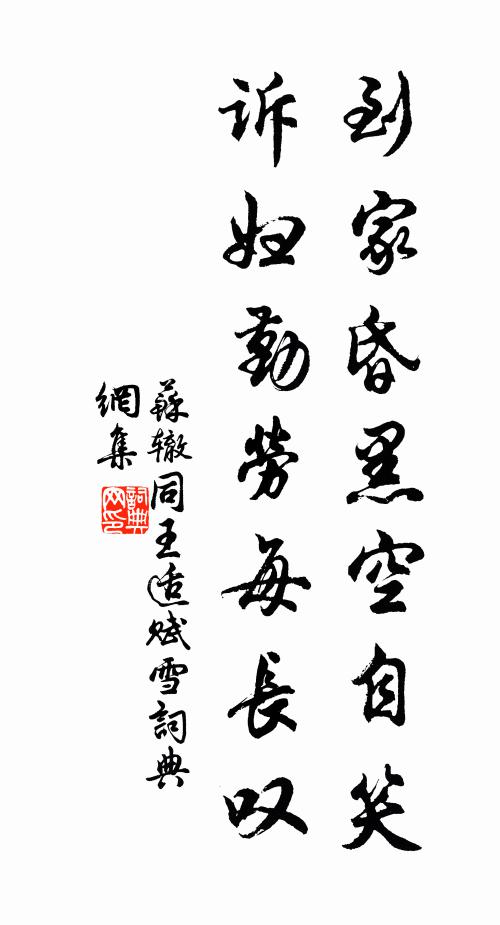 到家昏黑空自笑
诉妇勤劳每長叹
蘇辙同王适赋雪詞典
網集
詞典
网印